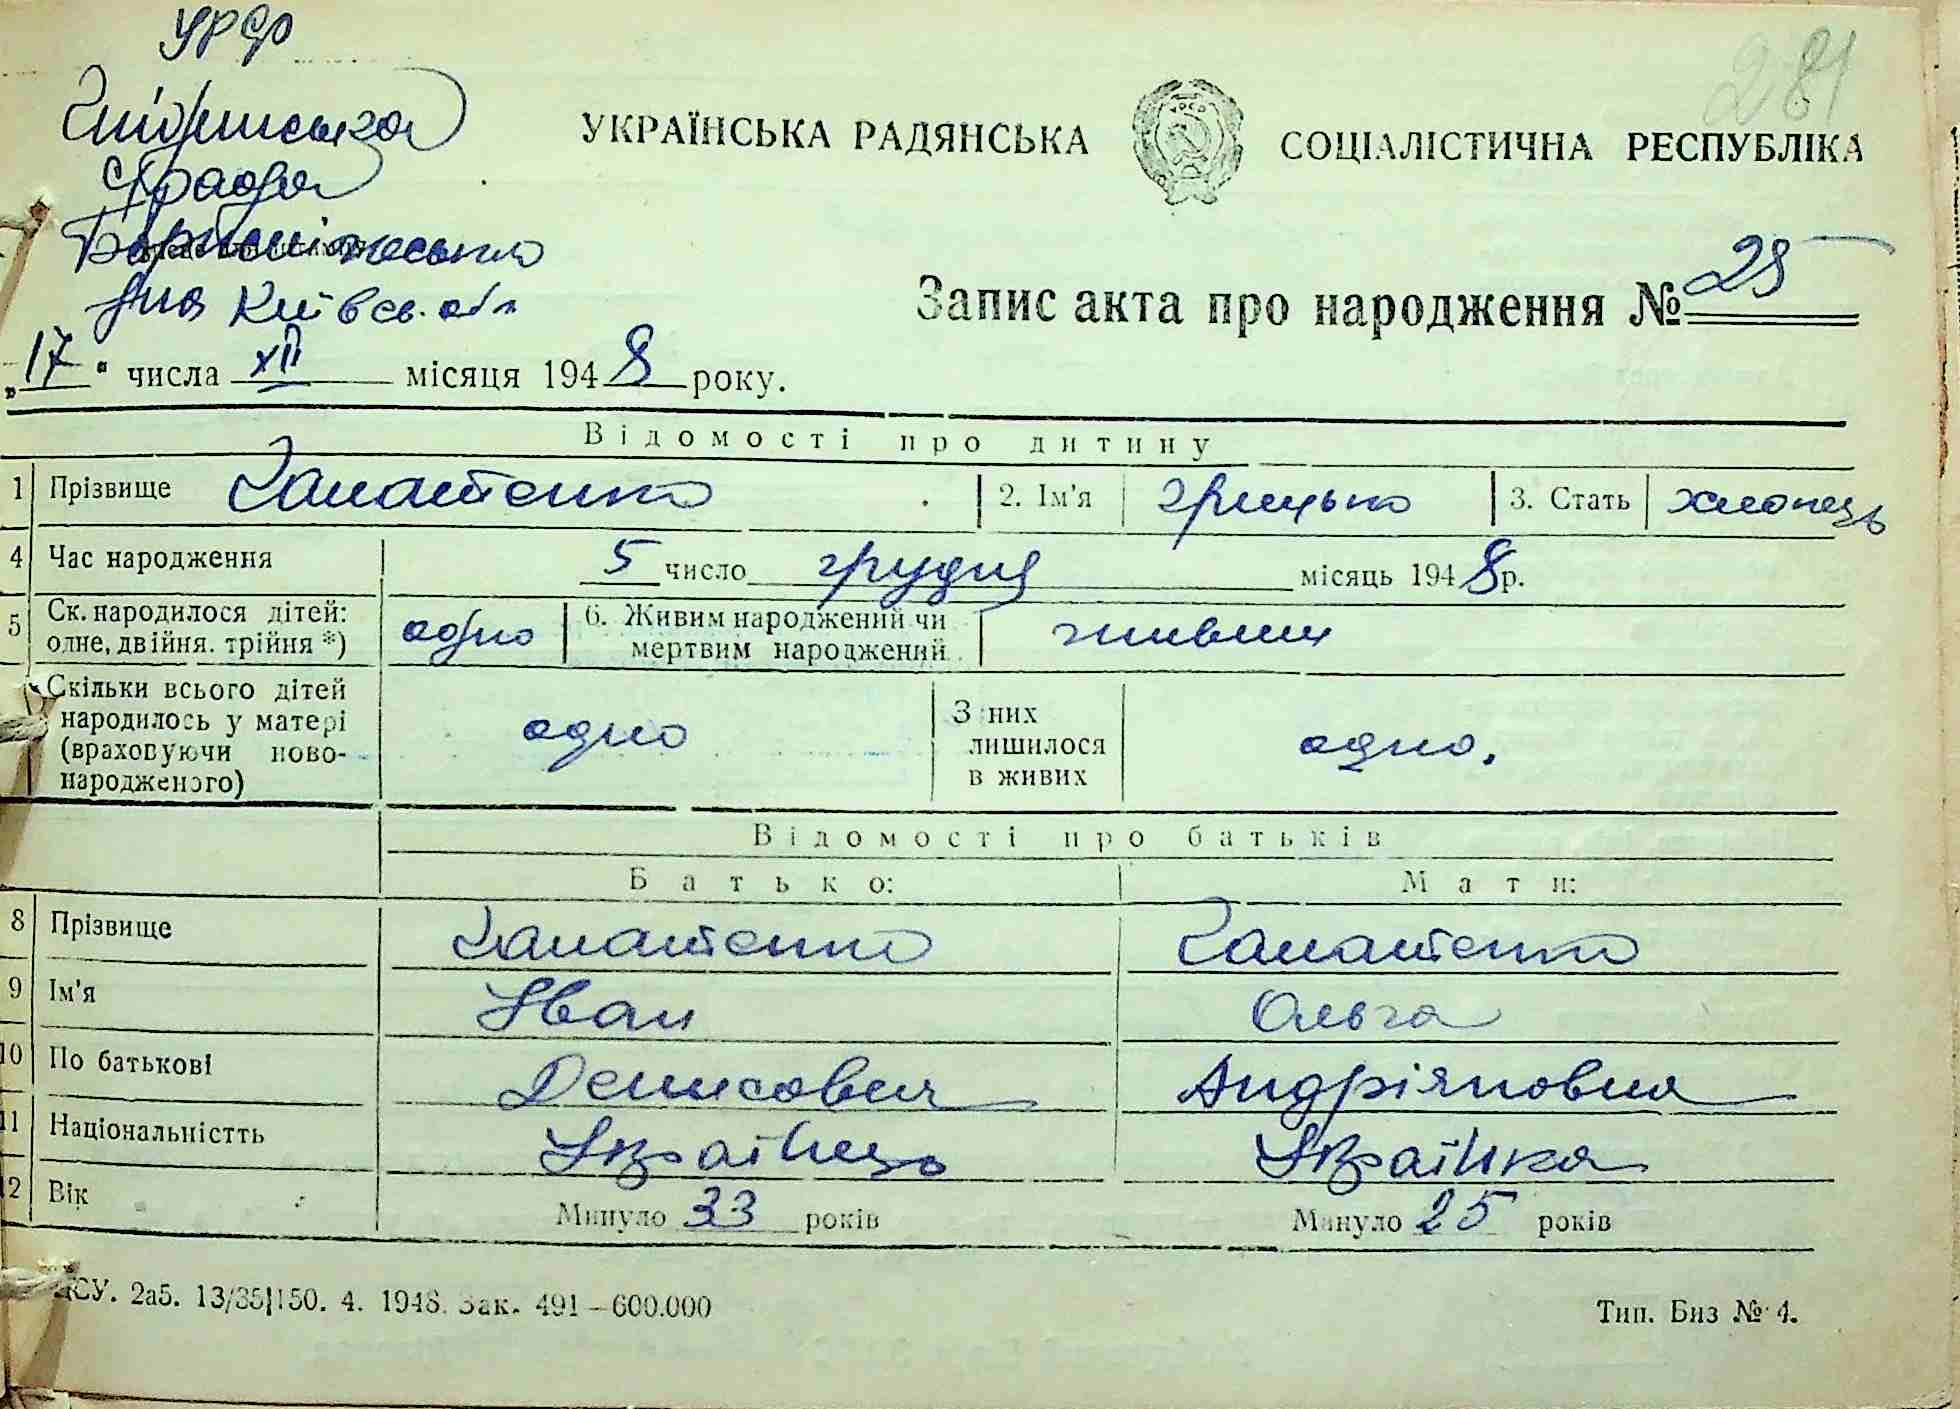 УРСР
281
Гнідинська
с/рада
Бориспільського
р-на Київськ. обл
УКРАЇНСЬКА РАДЯНСЬКА СОЦІАЛІСТИЧНА РЕСПУБЛІКА
Запис акта про народження № 25
„17" числа XII місяця 1948 року.
Відомості про дитину
1 Прізвище 2. Ім'я Грицько 3. Стать хлопець
4 Час народження 5 число грудня місяць 1948 р.
5 Ск. народилося дітей: одно 6. Живим народжений чи живим
одне, двійня. трійня *) мертвим народжений
Скільки всього дітей
народилось у матері одно З них одно.
(враховуючи ново- лишилося
народженого) в живих
Відомості про батьків
Батько: Мати:
8 Прізвище
9 Ім'я Іван Ольга
10 По батькові Денисович Андріяновна
11 Національністть Українець Українка
12 Вік Минуло 33 років Минуло 25 років
ЦСУ. 2а5. 13/35|150. 4. 1948. Зак. 491–600.000 Тип. Биз № 4.